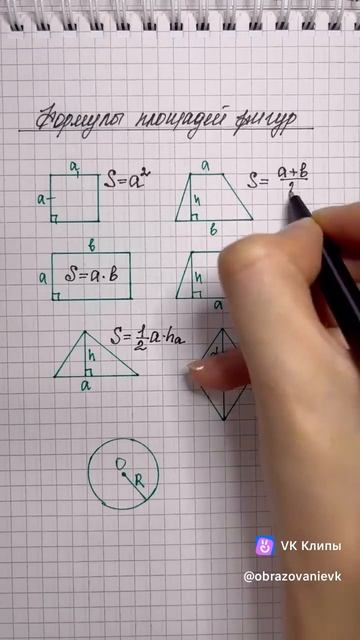 Формулы площадей фигур
a
a
S=a²
a
h
b
S= a+b
2
b
a
S=a·b
h
a
h
a
S=1/2 a·hₐ
d
O
R
VK Клипы
@obrazovanievk